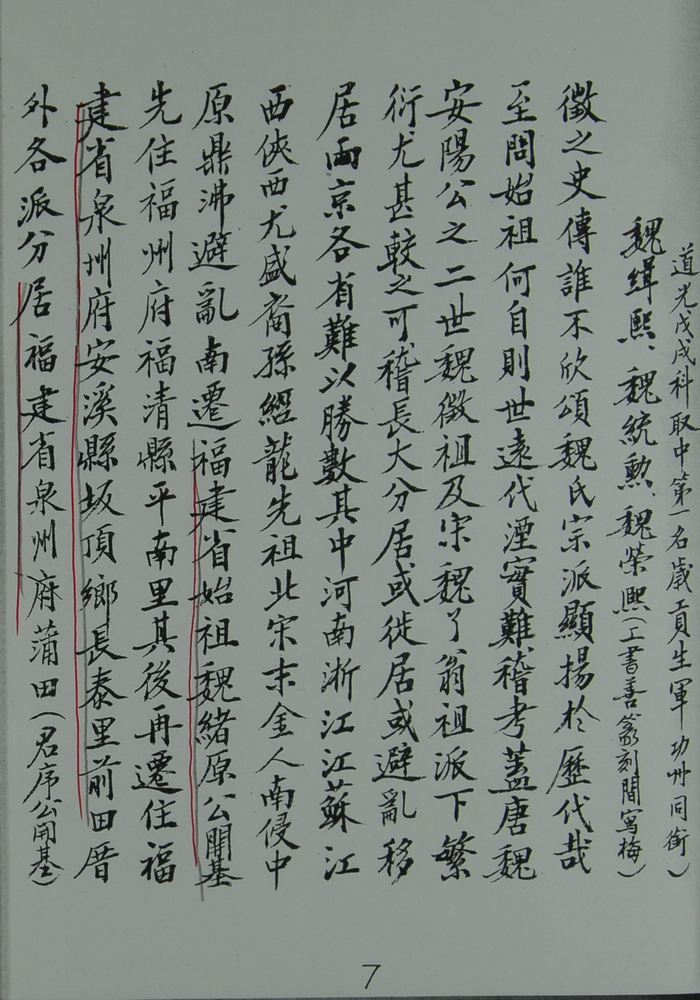 道光戊戌科取中第一名歲貢生軍功州同銜)
魏緝熙、魏統勲、魏榮熙(工書善篆刻間寫梅)
徵之史傳誰不欣頌魏氏宗派顯揚於歷代哉
至問始祖何自則世遠代湮實難稽考蓋唐魏
安陽公之二世魏徵祖及宋魏了翁祖派下繁
衍尤甚較之可稽長大分居或徙居或避亂移
居兩京各省難以勝數其中河南浙江江蘇江
西俠西尤盛裔孫紹龍先祖北宋末金人南侵中
原鼎沸避亂南遷福建省始祖魏緒原公開基
先住福州府福清縣平南里其後再遷住福
建省泉州府安溪縣坂頂鄉長泰里前田厝
外各派分居福建省泉州府蒲田(君序公開基)
7